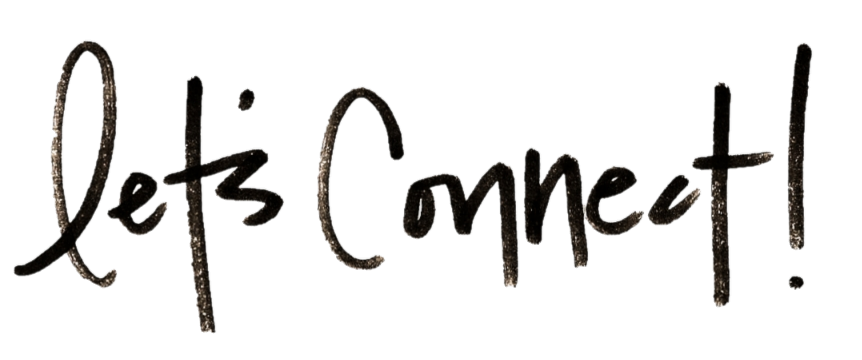 let's Connect!